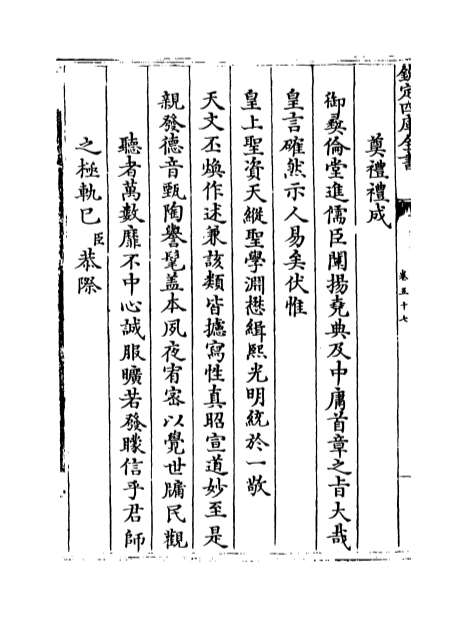 欽定四庫全書
卷五十七
奠禮禮成
御彜倫堂進儒臣闡揚堯典及中庸首章之旨大哉
皇言確然示人易矣伏惟
皇上聖資天縱聖學淵懋緝熙光明統於一敬
天文丕煥作述兼該類皆攄寫性真昭宣道妙至是
親發德音甄陶譽髦蓋本夙夜宥密以覺世牖民觀
聽者萬數靡不中心誠服曠若發矇信乎君師
之極軌巳臣恭際